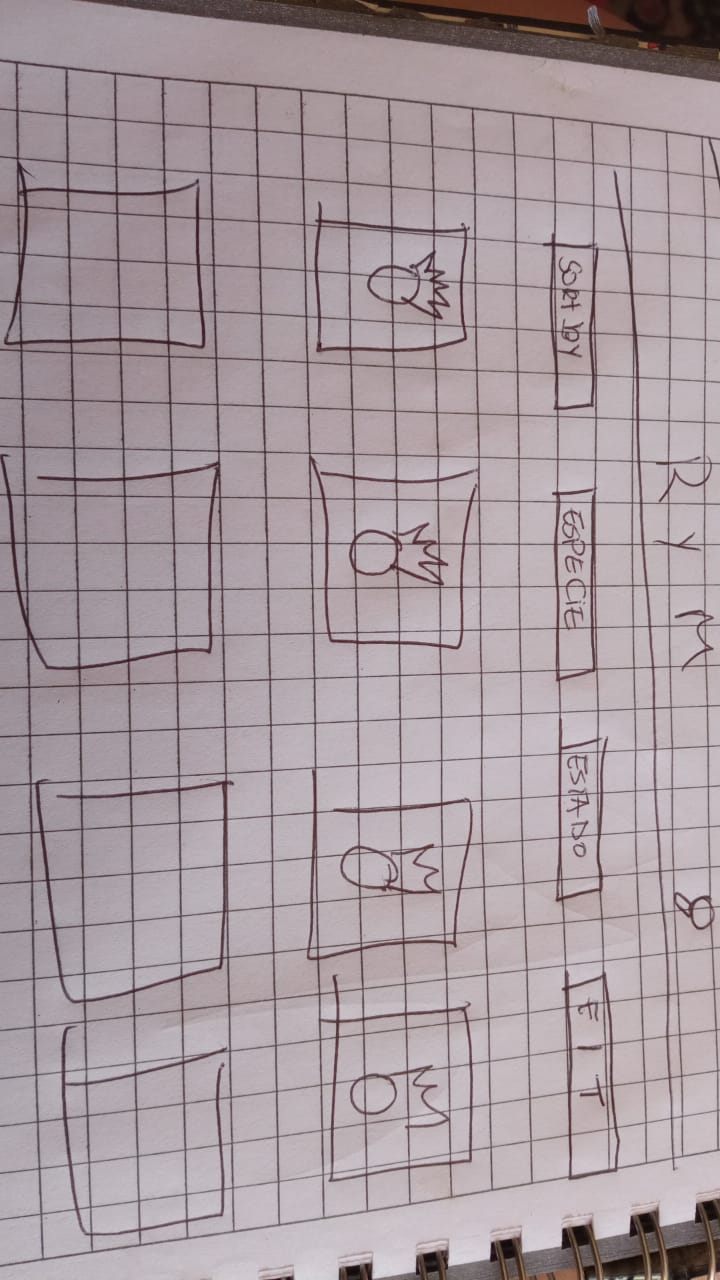 R y M 8
SORT BY ESPECIE ESTADO F I T